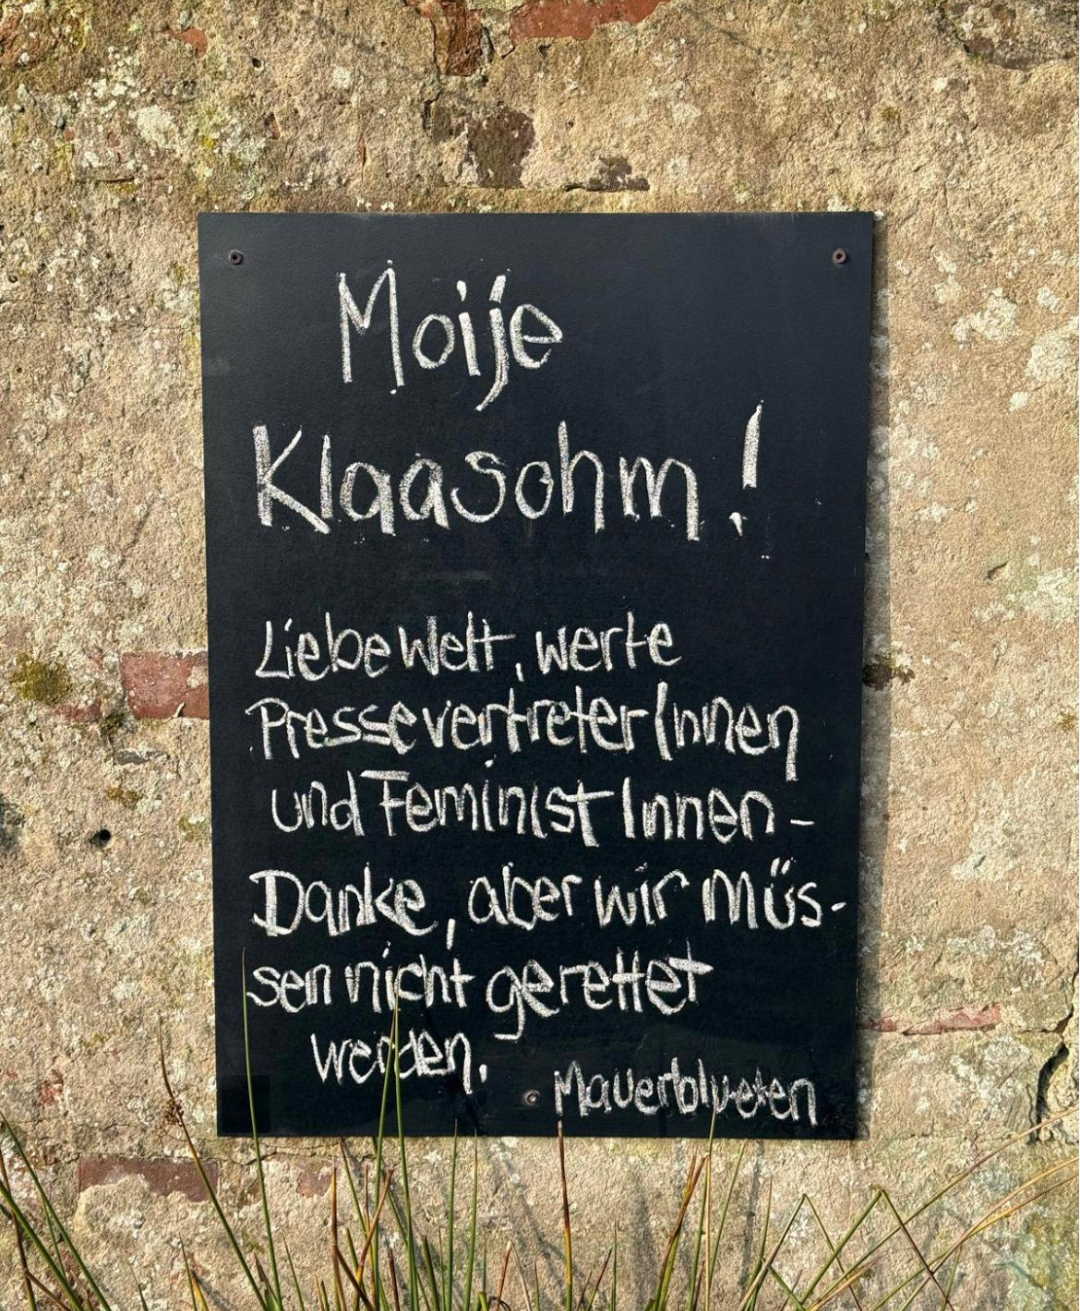 Moije
Klaasohm!
Liebe Welt, werte
PressevertreterInnen
und FeministInnen-
Danke, aber wir müs-
sen nicht gerettet
werden.
Mauerblueten